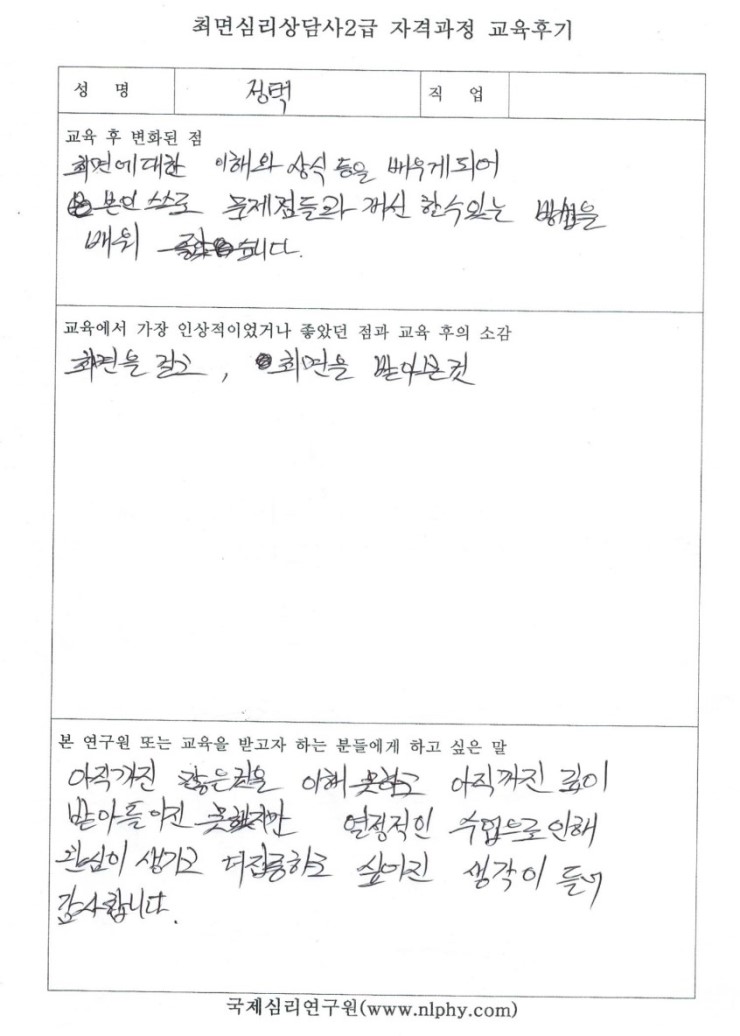 최면심리상담사2급 자격과정 교육후기
성 명 정택 직 업
교육 후 변화된 점
최면에대한 이해와 상식 등을 배우게되어
본인 스스로 문제점들과 개선 할수있는 방법을
배워 습니다.
교육에서 가장 인상적이었거나 좋았던 점과 교육 후의 소감
최면을 걸고, 최면을 받아본것
본 연구원 또는 교육을 받고자 하는 분들에게 하고 싶은 말
아직까진 많은것을 이해 못하고 아직까진 깊이
받아들이진 못했지만 열정적인 수업으로 인해
관심이 생기고 더집중하고 싶어진 생각이 들어
감사합니다.
국제심리연구원(www.nlphy.com)